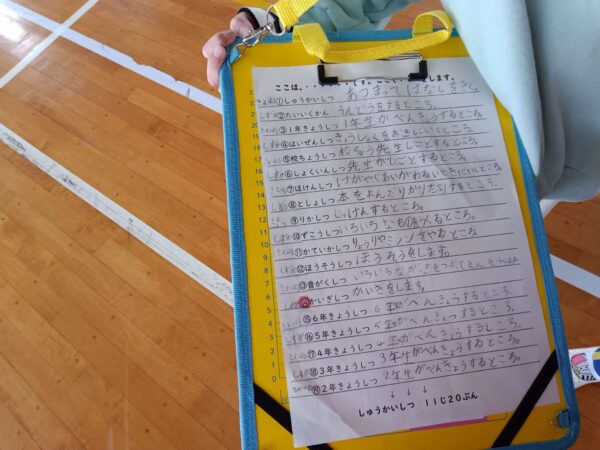 ここは、・・・・・・です。ここ　　　します。
①しゅうかいしつ あつまってはなしをきく。
しずか②たいいくかん うんどうをするところ。
③1年きょうしつ 1年生がべんきょうするところ。
④はいぜんしつ きゅうしょくをおきにいくところ。
⑤校ちょうしつ 校ちょう先生しごとするところ。
⑥しょくいんしつ 先生がしごとするところ。
⑦ほけんしつ けがやぐあいがわるいときにいくところ。
⑧としょしつ 本をよんだりかりたりするところ。
⑨りかしつ じっけんするところ。
⑩ずこうしつ いろいろなものをするところ。
⑪かていかしつ りょうりやミシンをやるところ。
⑫ほうそうしつ ほうそうをします。
⑬音がくしつ いろいろながっき
⑭かいぎしつ かいぎをします。
⑮6年きょうしつ 6年生がべんきょうするところ。
⑯5年きょうしつ 5年生がべんきょうするところ。
⑰4年きょうしつ 4年生がべんきょうするところ。
⑱3年きょうしつ 3年生がべんきょうするところ。
⑲2年きょうしつ 2年生がべんきょうするところ。
↓ ↓ ↓
しゅうかいしつ 11じ20ぷん